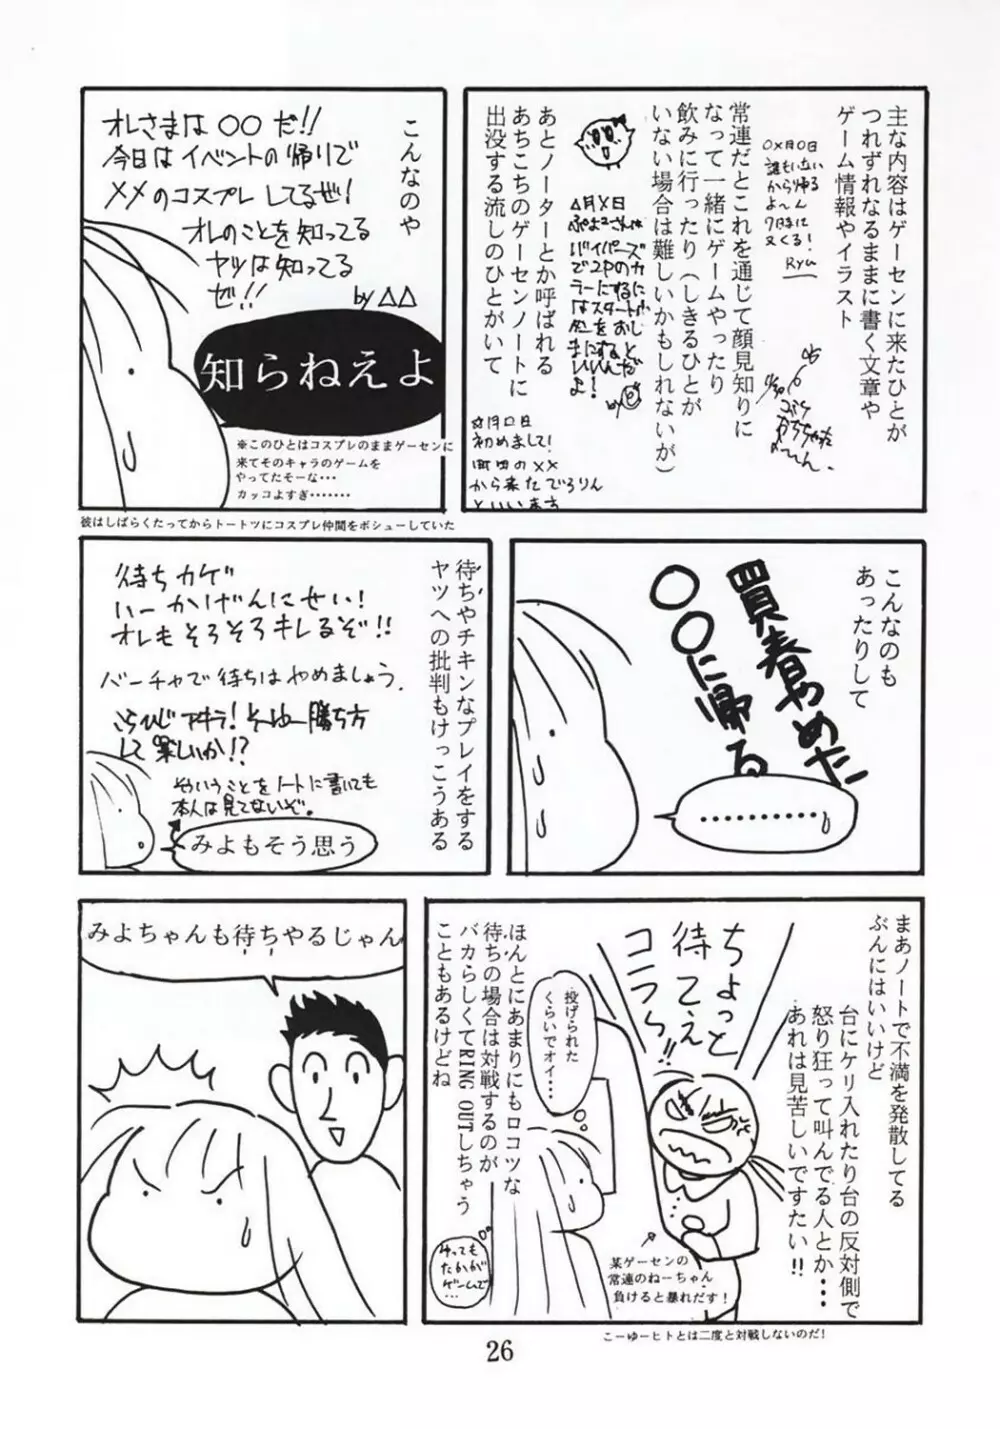 主な内容はゲーセンに来たひとが
つれずれなるままに書く文章や
ゲーム情報やイラスト
○×月○日
誰もいない
から帰る
よ〜ん
7時に
又くる！
Ryu
常連だとこれを通じて顔見知りに
なって一緒にゲームやったり
飲みに行ったり（しきるひとが
いない場合は難しいかもしれないが）
△月×日
by
あとノーターとか呼ばれる
あちこちのゲーセンノートに
出没する流しのひとがいて
×月□日
初めまして！
町田の××
から来たでろりん
といいます
こんなのや
オレさまは○○だ!!
今日はイベントの帰りで
××のコスプレしてるぜ！
オレのことを知ってる
ヤツは知ってる
ぜ!!
by△△
知らねえよ
※このひとはコスプレのままゲーセンに
来てそのキャラのゲームを
やってたそーな・・・
カッコよすぎ・・・・・・・
彼はしばらくたってからトートツにコスプレ仲間をボシューしていた
こんなのも
あったりして
買春やめた
○○に帰る
・・・・・・・・・・・・
待ちやチキンなプレイをする
ヤツへの批判もけっこうある
待ちカゲ
いーかげんにせい！
オレもそろそろキレるぞ!!
バーチャで待ちはやめましょう。
うらひじアキラ！そゆー勝ち方
して楽しいか!?
そういうことをノートに書いても
本人は見てないぞ。
みよもそう思う
まあノートで不満を発散してる
ぶんにはいいけど
台にケリ入れたり台の反対側で
怒り狂って叫んでる人とか・・・
あれは見苦しいですたい!!
ちょっと
待てぇ
コラら!!
投げられた
くらいでオイ・・・
某ゲーセンの
常連のねーちゃん
負けると暴れだす！
ほんとにあまりにもロコツな
待ちの場合は対戦するのが
バカらしくてRING OUTしちゃう
こともあるけどね
たかが
ゲームで
・・・
こーゆーヒトとは二度と対戦しないのだ！
みよちゃんも待ちやるじゃん
26